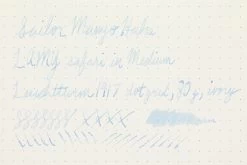 Sailor Manyo Haha
LAMY safari in Medium
Leuchtturm 1917 dot grid, 80 g, ivory
xxxx